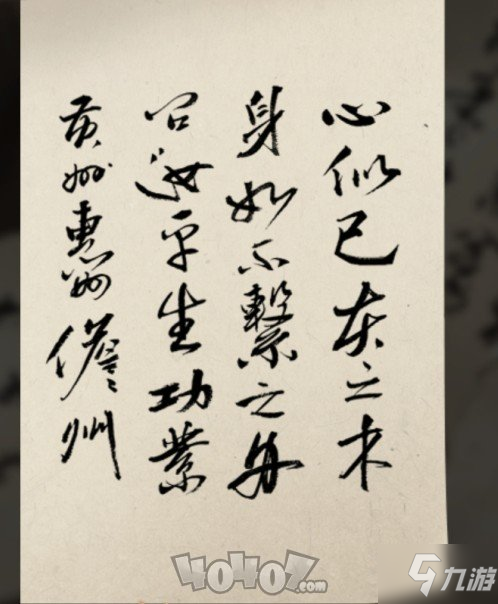 心似已灰之木
身如不繫之舟
问汝平生功業
黄州惠州儋州
40407.com
九游